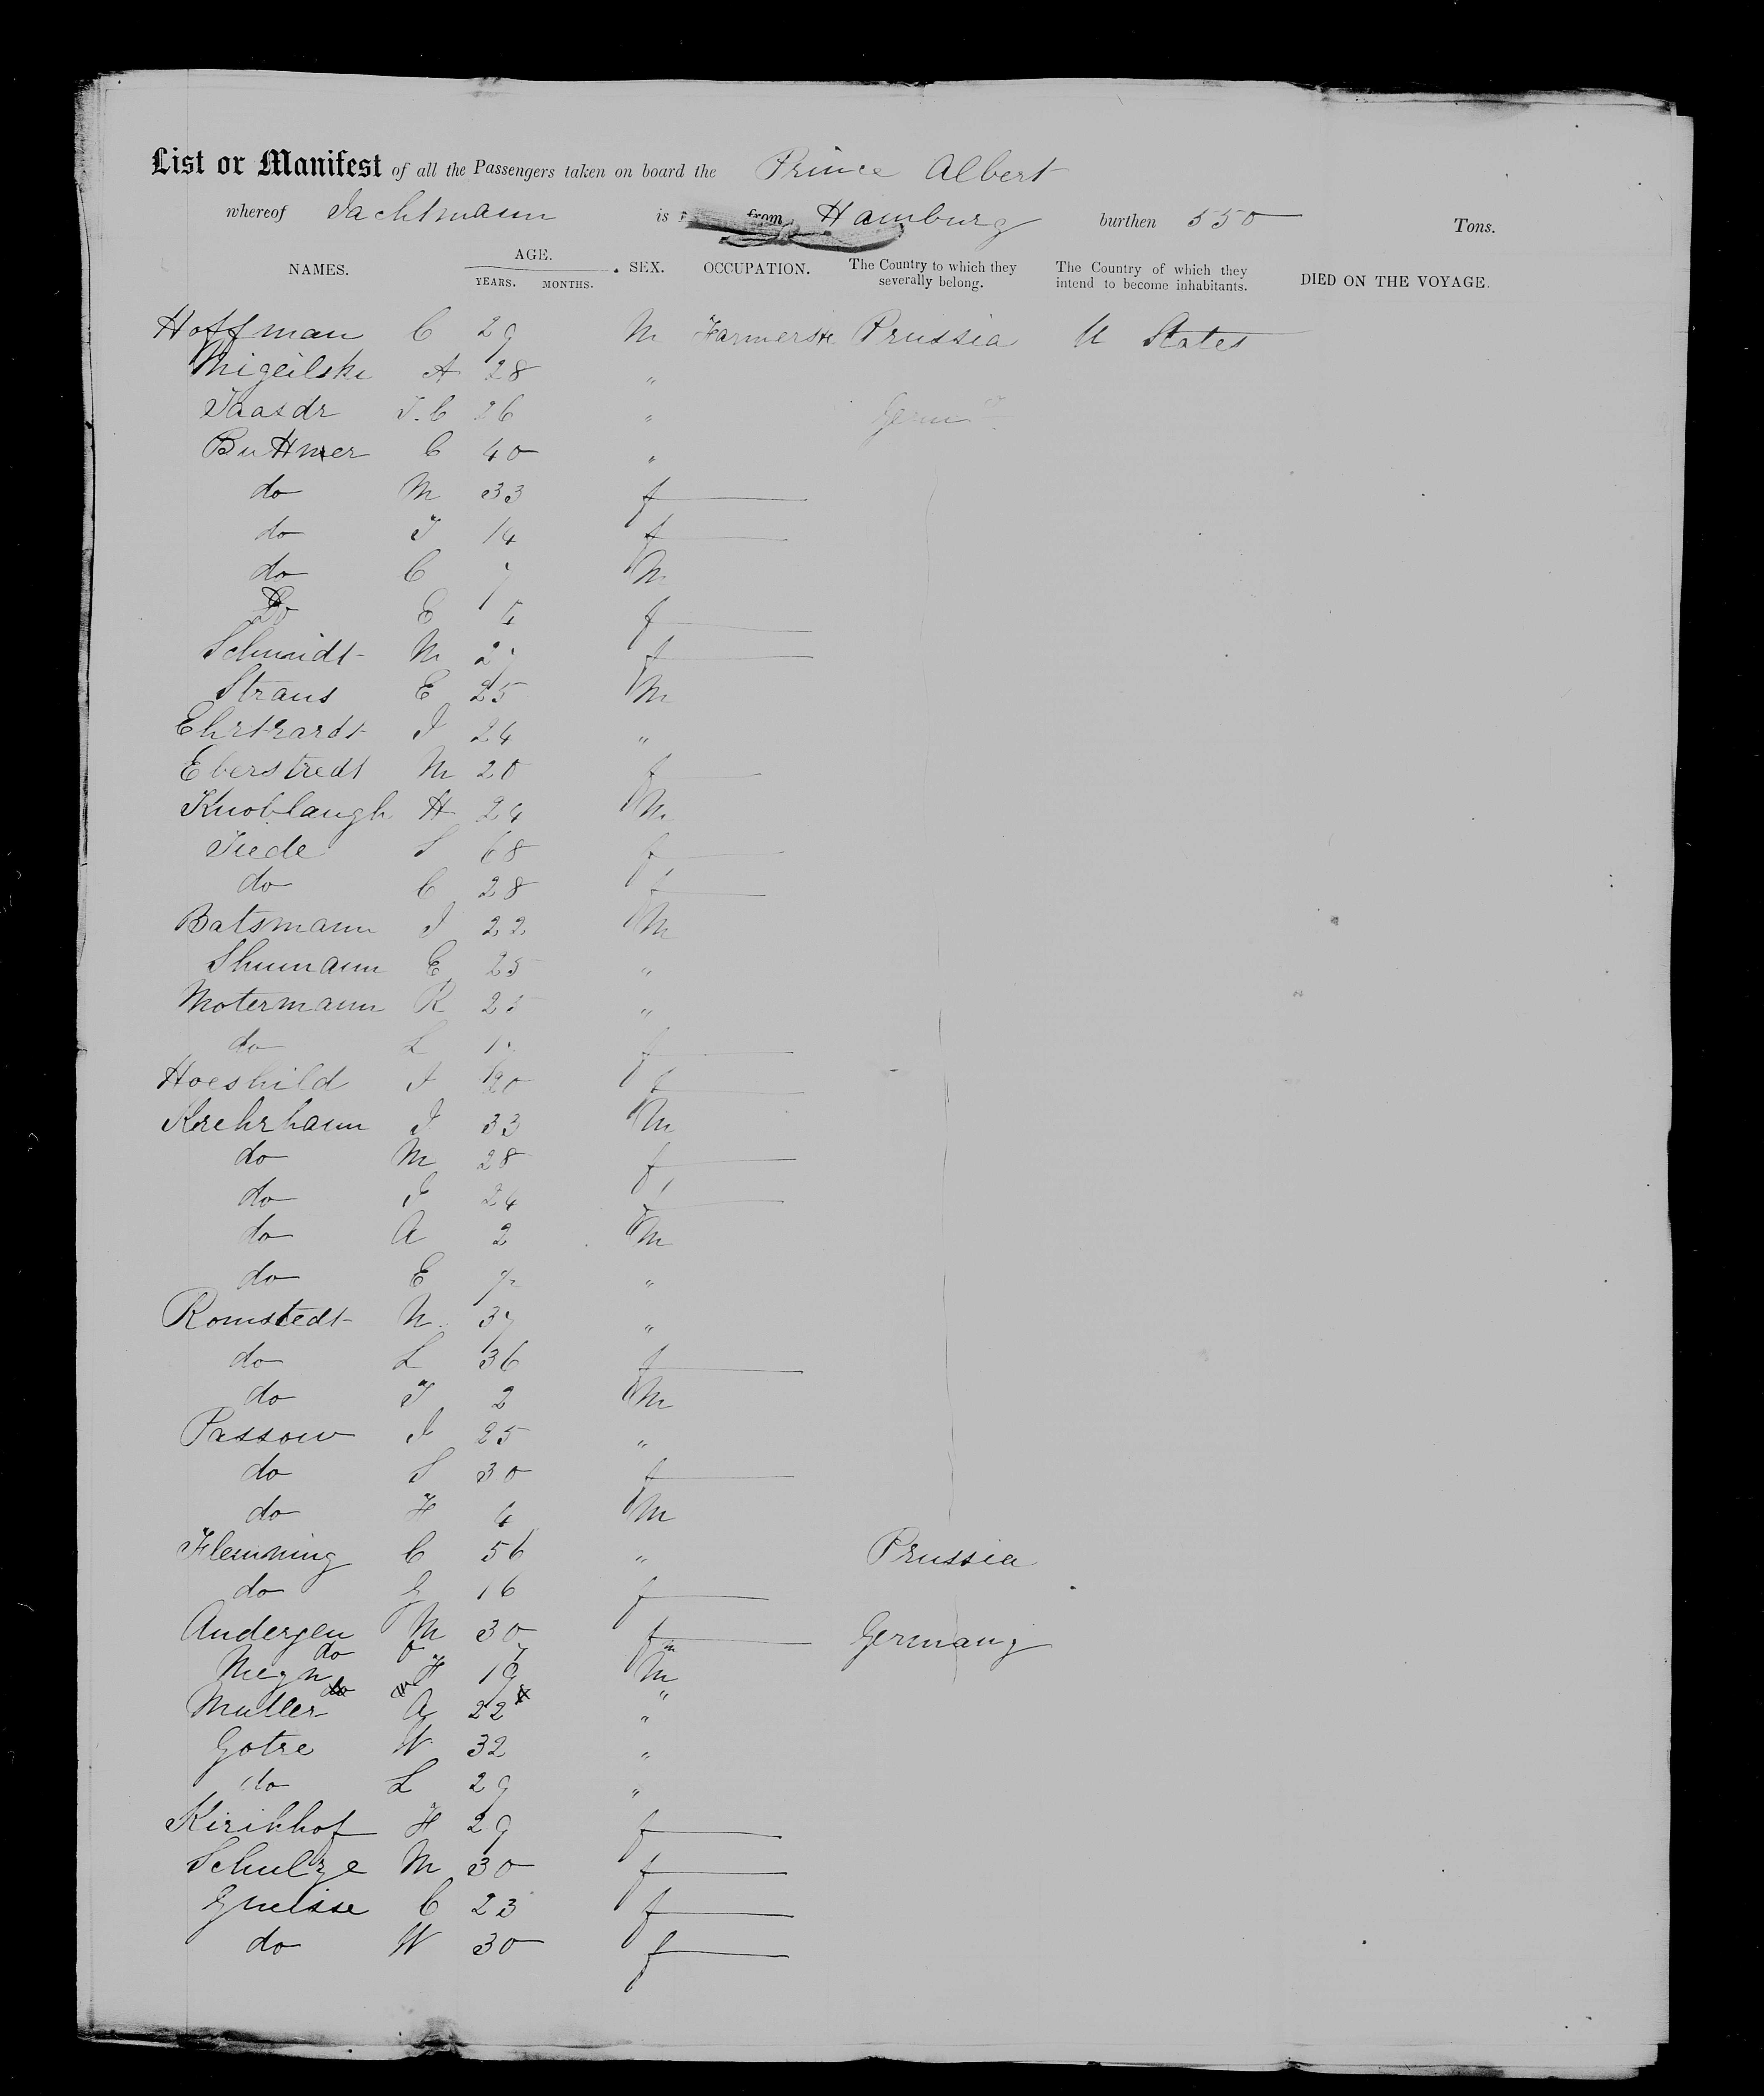 List or Manifest of all the Passengers taken on board the Prince Albert
whereof Jachtmann is from Hamburg burthen 550 Tons.
NAMES. AGE. YEARS. MONTHS. SEX. OCCUPATION. The Country to which they severally belong. The Country of which they intend to become inhabitants. DIED ON THE VOYAGE.
Hoffman C 29 M Prussia U States
Migeilske A 28 "
J. C 26 " Germ
Buttner C 40 "
do M 33 f
do T 14 f
do C 7 M
Do E 4 f
Schmidt M 27 f
Straus E 25 M
Ehrhardt J 24 "
Eberstredt M 20 f
Knoblaugh H 24 M
Tiede S 68 f
do C 28 f
Batsmann J 22 M
Shumann E 25 "
Motermann R 25 "
do L f
Hoeshild J 20 f
Krehrhann J 33 M
do M 28 f
do J 24 f
do A 2 M
do E "
Romstedt N. 37 "
do L 36 f
do T 2 M
Passow J 25 "
do S 30 f
do H 4 M
Flemming C 56 " Prussia
do G 16 f
Andersen M 30 f Germany
do
H 19 M
Muller A 22 "
Gotre W 32 "
do L 29 "
Kirikhof H 29 f
Schulze M 30 f
C 23 f
do W 30 f